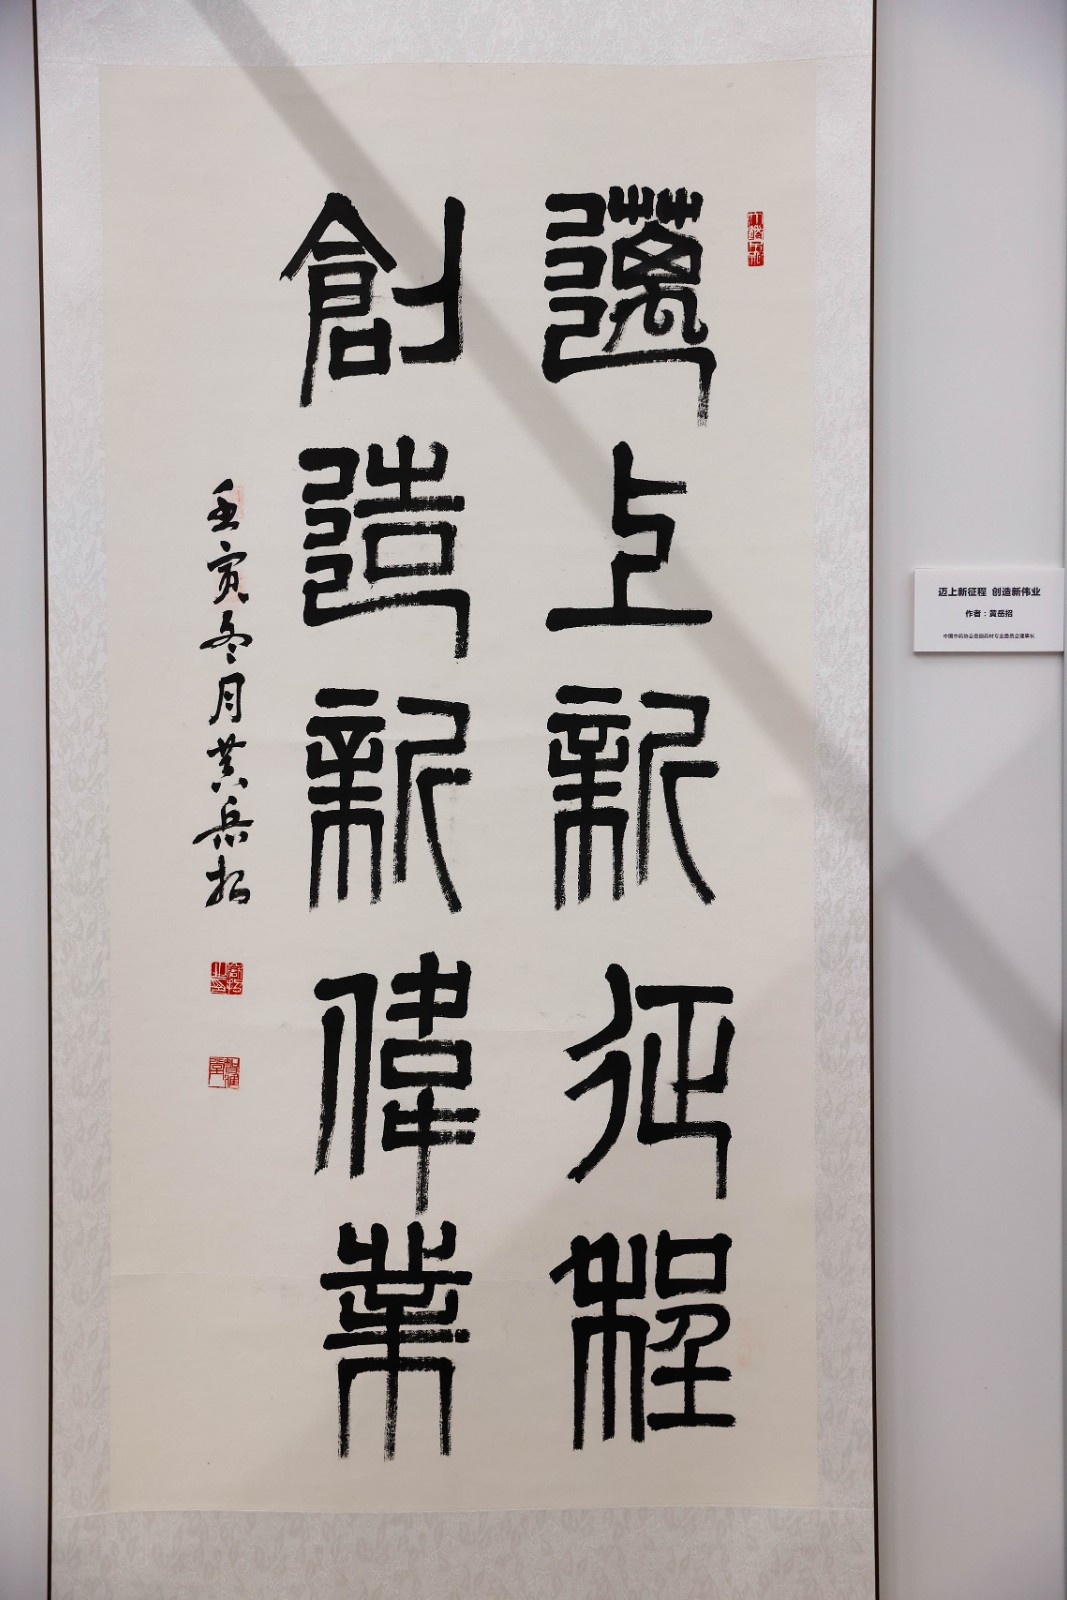 邁上新征程
創造新偉業
壬寅冬月黄岳招
迈上新征程 创造新伟业
作者：黄岳招